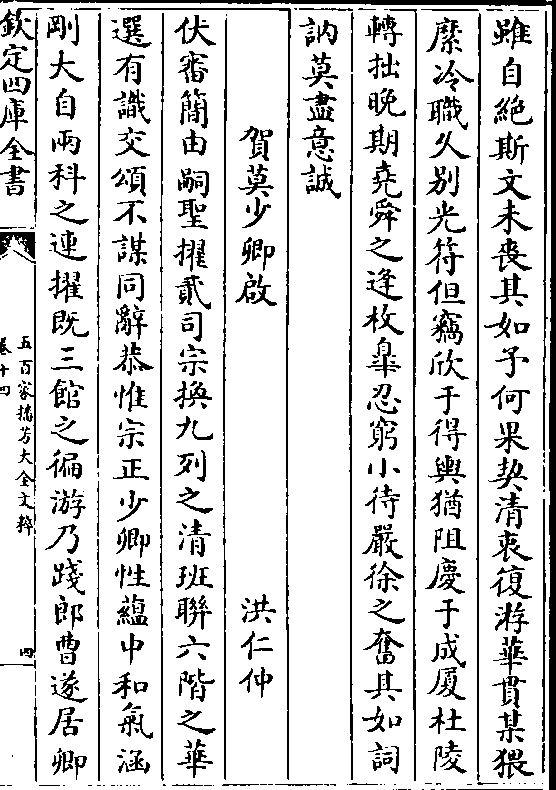 雖自絕斯文未喪其如予何果契清衷復游華貫某猥
縻冷職久別光符但竊欣于得輿猶阻慶于成厦杜陵
轉拙晚期堯舜之逢枚臯忍窮小待嚴徐之奮其如詞
訥莫盡意誠
賀莫少卿啟
洪仁仲
伏審簡由嗣聖擢貳司宗換九列之清班聯六階之華
選有識交頌不謀同辭恭惟宗正少卿性蘊中和氣涵
剛大自兩科之連擢既三館之徧游乃踐郎曹遂居卿
欽定四庫全書
五百家播芳大全文粹
卷十四
四